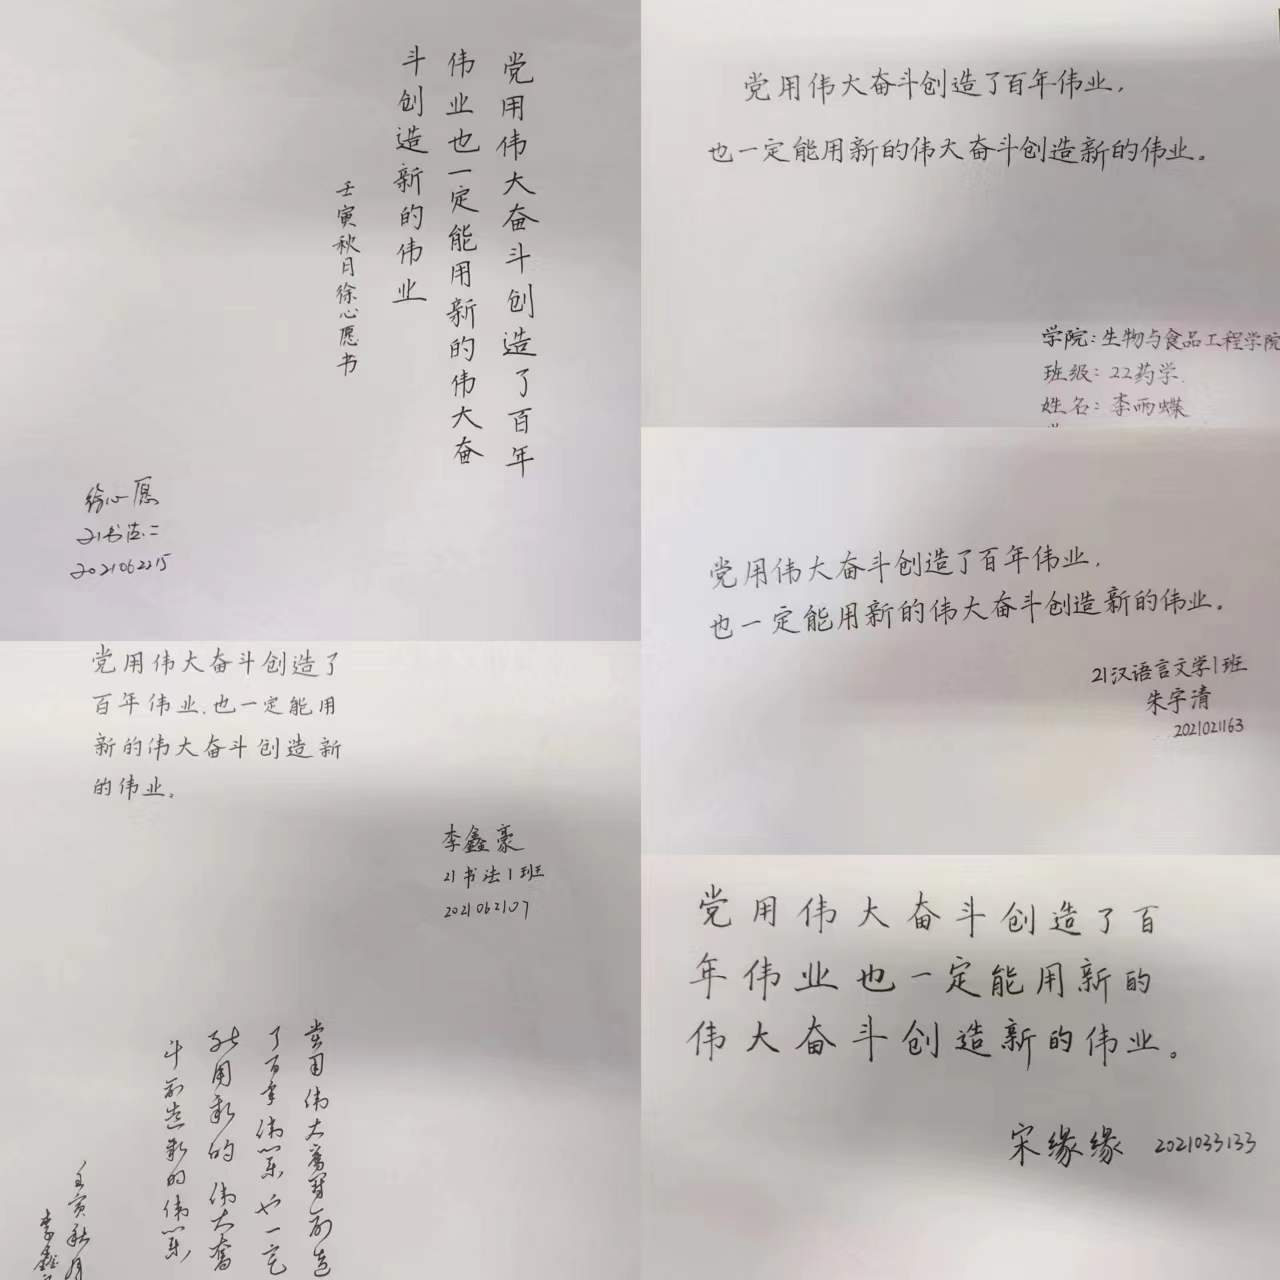 党用伟大奋斗创造了百年
伟业也一定能用新的伟大奋
斗创造新的伟业
壬寅秋月徐心愿书
徐心愿
21书法二
2021062215
党用伟大奋斗创造了百年伟业,
也一定能用新的伟大奋斗创造新的伟业。
学院:生物与食品工程学院
班级:22药学
姓名:李雨蝶
党用伟大奋斗创造了百年伟业,
也一定能用新的伟大奋斗创造新的伟业。
21汉语言文学1班
朱宇清
2021021163
党用伟大奋斗创造了
百年伟业,也一定能用
新的伟大奋斗创造新
的伟业。
李鑫豪
21书法1班
2021062107
党用伟大奮斗创造
了百年伟業也一定
能用新的伟大奮
斗创造新的伟業
壬寅秋月
李鑫
党用伟大奋斗创造了百
年伟业也一定能用新的
伟大奋斗创造新的伟业。
宋缘缘 2021033133